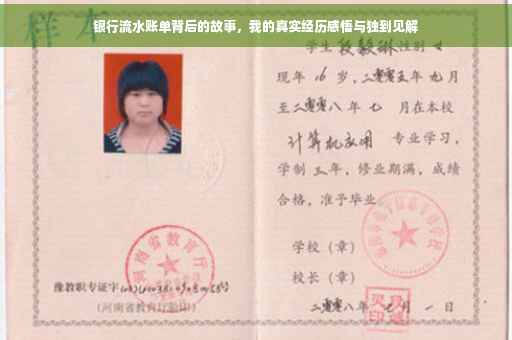 银行流水账单背后的故事，我的真实经历感悟与独到见解
样本
学生段毅琳性别女
现年16岁，二零零五年九月
至二零零八年七月在本校
计算机应用专业学习，
学制三年，修业期满，成绩
合格，准予毕业
学校（章）
校长（章）
二零零八年七月一日
河南省教育厅
豫教职专证字
（河南省教育厅验印）